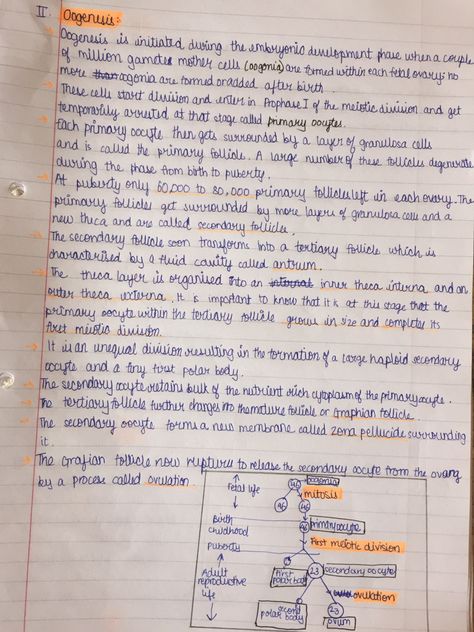 II. Oogenesis:
Oogenesis is initiated during the embryonic development phase when a couple
of million gamete mother cells (oogonia) are formed within each fetal ovary; no
more oogonia are formed or added after birth.
These cells start division and enter in Prophase I of the meiotic division and get
temporarily arrested at that stage called primary oocytes.
Each primary oocyte then gets surrounded by a layer of granulosa cells
and is called the primary follicle. A large number of these follicles degenerate
during the phase from birth to puberty.
At puberty only 60,000 to 80,000 primary follicles left in each ovary. The
primary follicles get surrounded by more layers of granulosa cells and a
new theca and are called secondary follicle.
The secondary follicle soon transforms into a tertiary follicle which is
characterised by a fluid cavity called antrum.
The theca layer is organised into an inner theca interna and an
outer theca externa. It is important to know that it is at this stage that the
primary oocyte within the tertiary follicle grows in size and completes its
first meiotic division.
It is an unequal division resulting in the formation of a large haploid secondary
oocyte and a tiny first polar body.
The secondary oocyte retains bulk of the nutrient rich cytoplasm of the primary oocyte.
The tertiary follicle further changes into the mature follicle or Graphian follicle.
The secondary oocyte forms a new membrane called zona pellucide surrounding
it.
The Grafian follicle now rupture to release the secondary oocyte from the ovary
by a process called ovulation.
Fetal life
46 oogonia
mitosis
46 46
Birth
childhood
Puberty
46 primary oocyte
First meiotic division
Adult
reproductive
life
First
polar body
23 secondary oocyte
ovulation
second
polar body
23
ovum